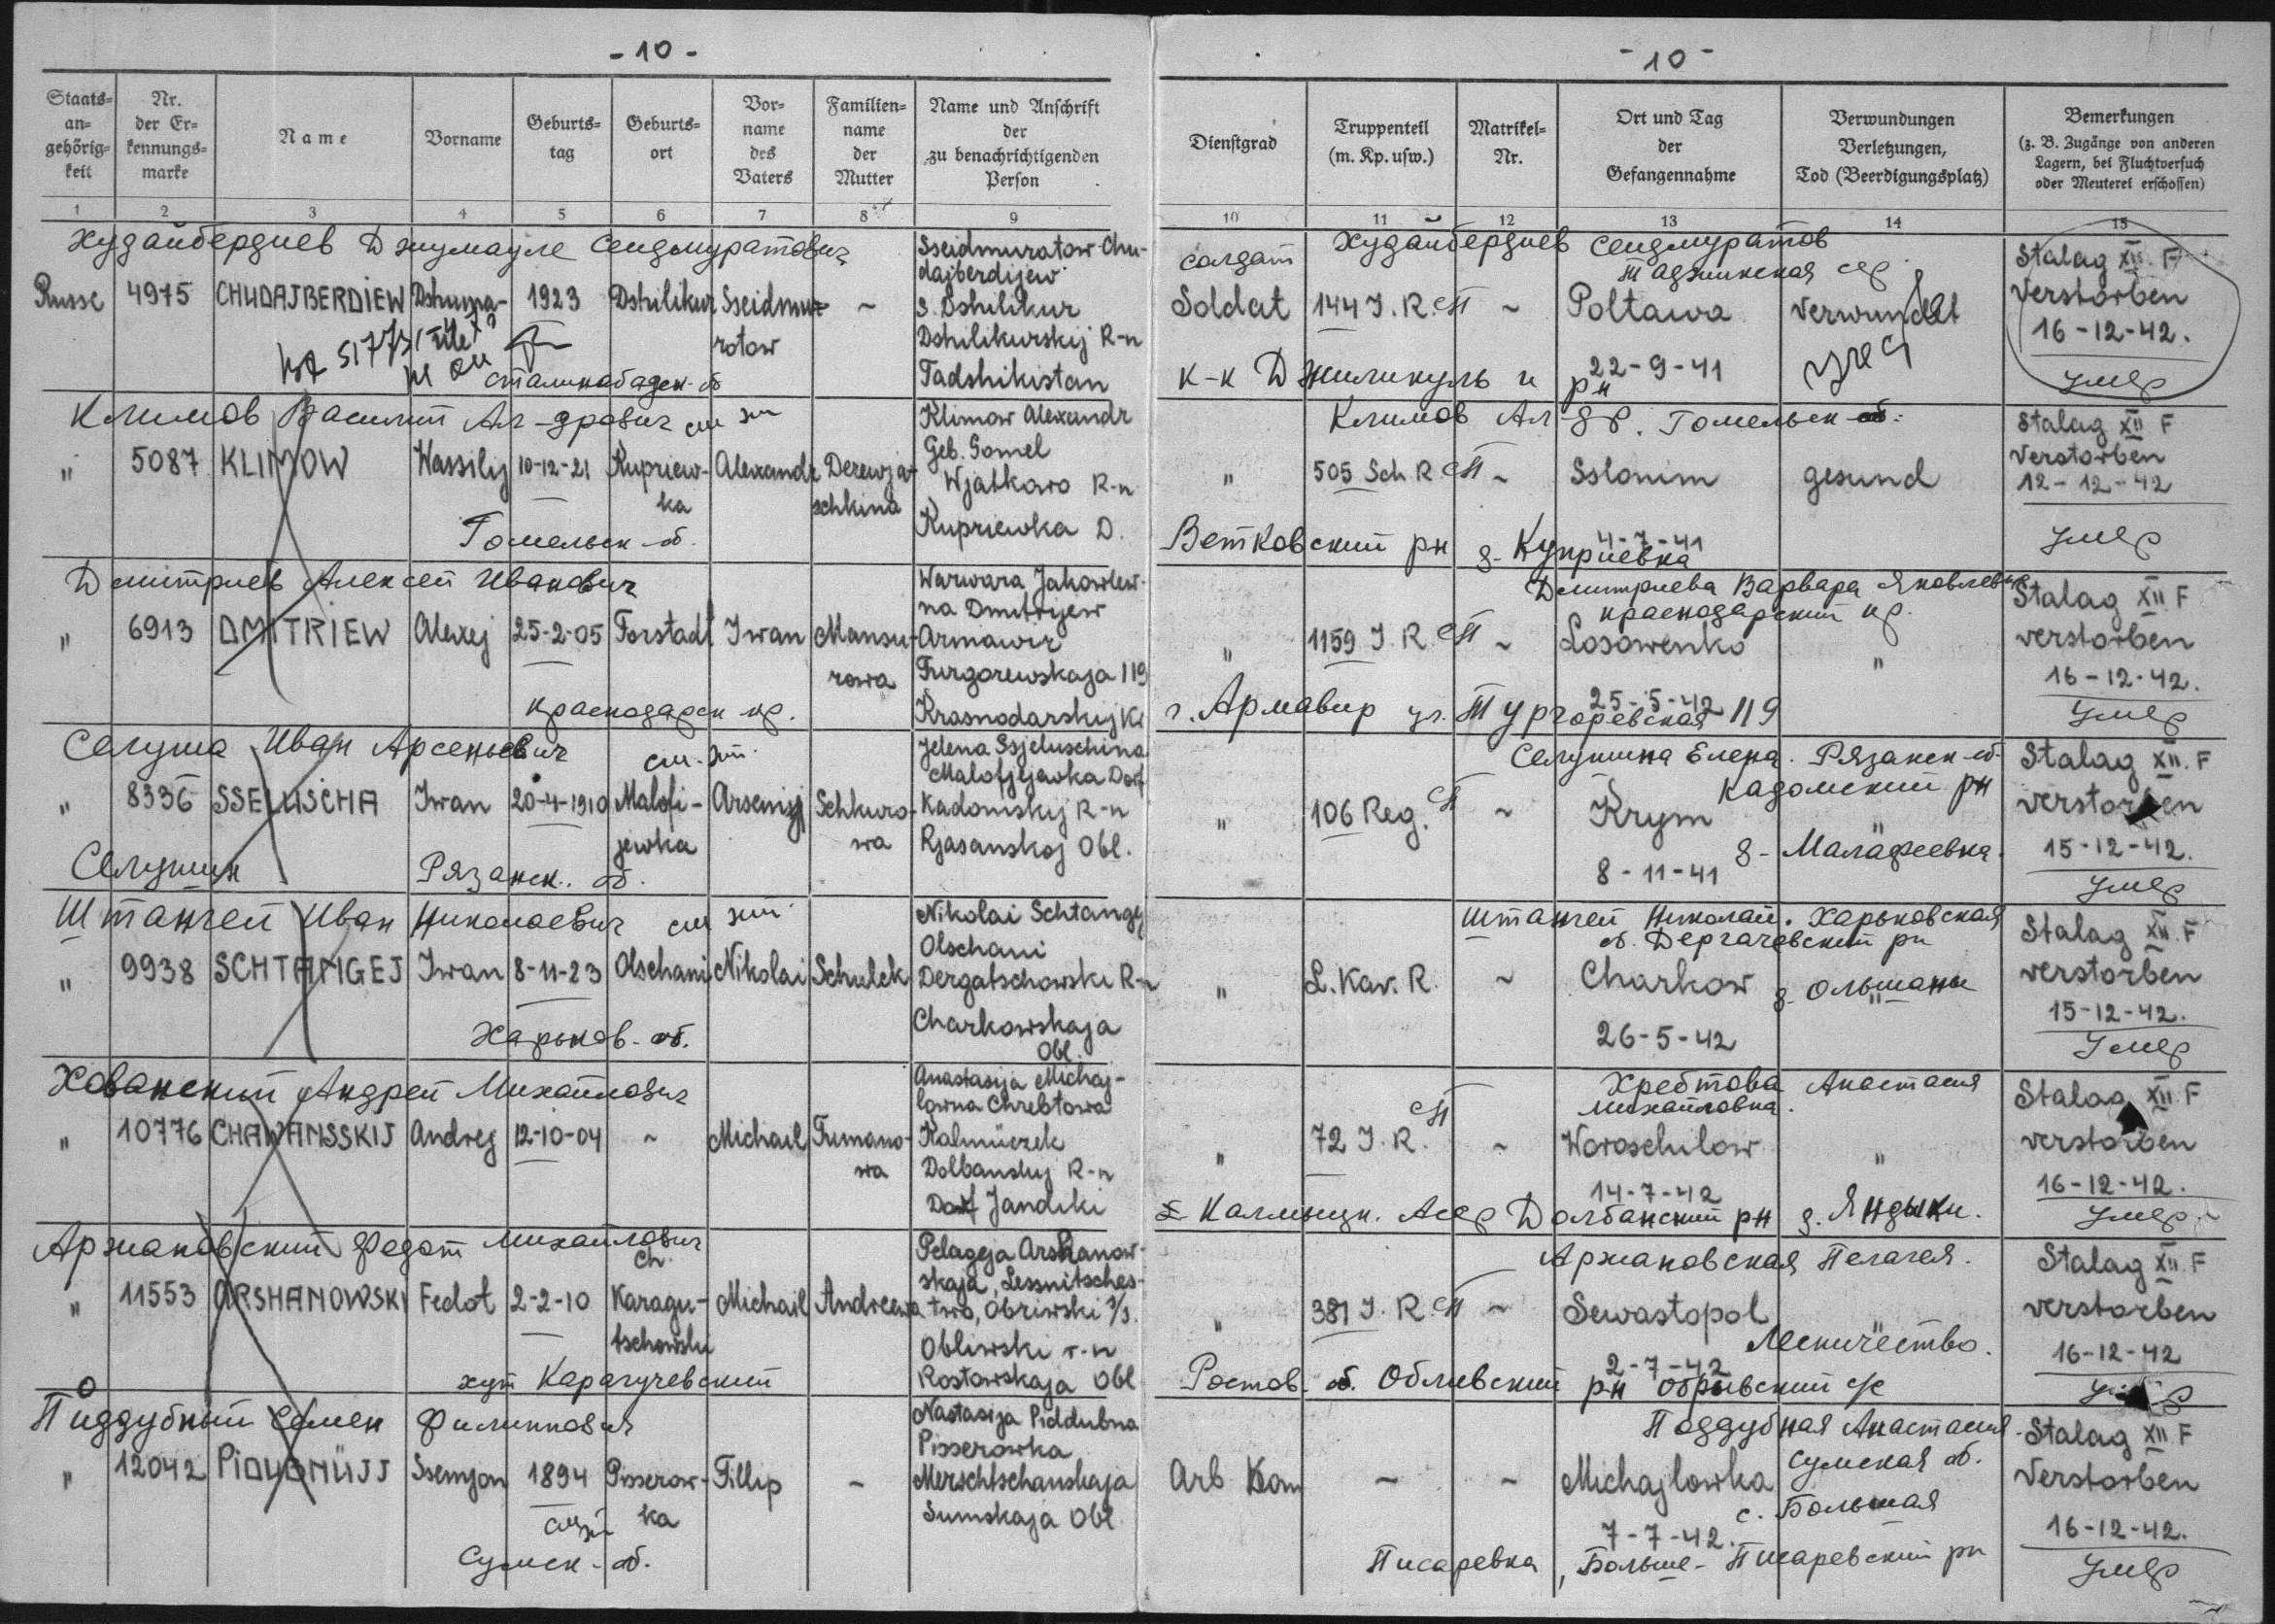 - 10 -
- 10 -
Staats-angehörig-keit
Nr. der Er-kennungs-marke
Name
Vorname
Geburts-tag
Geburts-ort
Vor-name des Vaters
Familien-name der Mutter
Name und Anschrift der zu benachrichtigenden Person
Dienstgrad
Truppenteil (m. Kp. usw.)
Matrikel-Nr.
Ort und Tag der Gefangennahme
Verwundungen Verletzungen, Tod (Beerdigungsplatz)
Bemerkungen (z. B. Zugänge von anderen Lagern, bei Fluchtversuch oder Meuterei erschossen)
1 2 3 4 5 6 7 8 9 10 11 12 13 14 15
Худайбердиев Джумауле Сеидмуратович
Sseidmuratow Chu-
dajberdijew
солдат Худайбердиев Сеидмуратов
Таджикская сср
Stalag XII F
Russe 4975 CHUDAJBERDIEW Dshuma- 1923 Dshilikur Sseidmu- ~ S. Dshilikur
Soldat 144 J.R. сп ~ Poltawa verwundet
Verstorben
rotow Dshilikurskij R-n
16-12-42.
сталинабадск-об Tadshikistan
к-к Джиликуль и рн 22-9-41
умер
Климов Василий Ал-дрович см эт
Klimow Alexandr
Климов Ал-др. Гомельск об.
Stalag XII F
" 5087 KLIMOW Wassilij 10-12-21 Kupriew- Alexandr Derewja- Geb. Gomel
" 505 Sch R сп ~ Sslonim gesund
Verstorben
ka schkina Wjatkowo R-n
12-12-42
Гомельск-об. Kupriewka D.
Ветковский рн д-Куприевка 4-7-41
умер
Дмитриев Алексей Иванович
Warwara Jakowlew-
na Dmitrijew
Дмитриева Варвара Яковлевна
краснодарский кр.
Stalag XII F
" 6913 DMITRIEW Alexej 25-2-05 Forstadt Iwan Mansu- Armawir
" 1159 J.R. сп ~ Losowenko "
verstorben
rowa Turgorewskaja 119
16-12-42.
краснодарск-кр. Krasnodarskij Kr
г. Армавир ул. Тургоревская 119 25-5-42
умер
Селуша Иван Арсеньевич см. эт
Jelena Ssjeluschina
Malofjejewka Dorf
Селушина Елена. Рязанск-об.
Кадомский рн
Stalag XII. F
" 8336 SSELUSCHA Iwan 20-4-1910 Malofi- Arsenij Schkuro- Kadomskij R-n
" 106 Reg. сп ~ Krym "
verstorben
jewka wa Rjasanskoj Obl.
д-Малафеевка.
15-12-42.
Селушин Рязанск. об.
8-11-41
умер
Штангей Иван Николаевич см эт
Nikolai Schtangej
Штангей Николай. Харьковская
об. Дергачевский рн
Stalag XII. F
Olschani
" 9938 SCHTANGEJ Iwan 8-11-23 Olschani Nikolai Schulek Dergatschowski R-n
" L. Kav. R. ~ Charkow " д-Ольшаны
verstorben
Charkowskaja
15-12-42.
Харьков-об. Obl.
26-5-42
Умер
Хованский Андрей Михайлович
Anastasija Michaj-
lowna Chrebtowa
Хребтова Анастасия
Михайловна.
Stalag XII. F
" 10776 CHAWANSSKIJ Andrej 12-10-04 ~ Michail Tumano- Kalmüczk
" 72 J.R. сп ~ Woroschilow "
verstorben
wa Dolbanskij R-n
14-7-42
16-12-42.
Dorf Jandiki
Калмыцк. Асср Долбанский рн д. Яндыки.
Умер
Аржановский Федот Михайлович
Pelageja Arshanow-
Аржановская Пелагея.
Stalag XII. F
Ch. skaja, Lessnitsches-
" 11553 ARSHANOWSKI Fedot 2-2-10 Karagu- Michail Andreewa two, Obriwski s/s.
" 381 J.R. сп ~ Sewastopol "
verstorben
tschowski Obliwski r-n
Лесничество.
16-12-42
хут Карагучевский Rostowskaja Obl
Ростов-об. Обливский рн Обрывский с/с 2-7-42
о
Пиддубный Семен Филиппович
Nastasija Piddubna
Поддубная Анастасия
Stalag XII F
Pisserowka
Сумская об.
" 12042 Ssemjon 1894 Pisserow- Fillip ~ Merschtschanskaja
Arb Kom ~ ~ Michajlowka
Verstorben
ka Sumskaja Obl.
с. Большая
7-7-42.
16-12-42.
Сумск-об.
Писаревка, Больше-Писаревский рн
умер